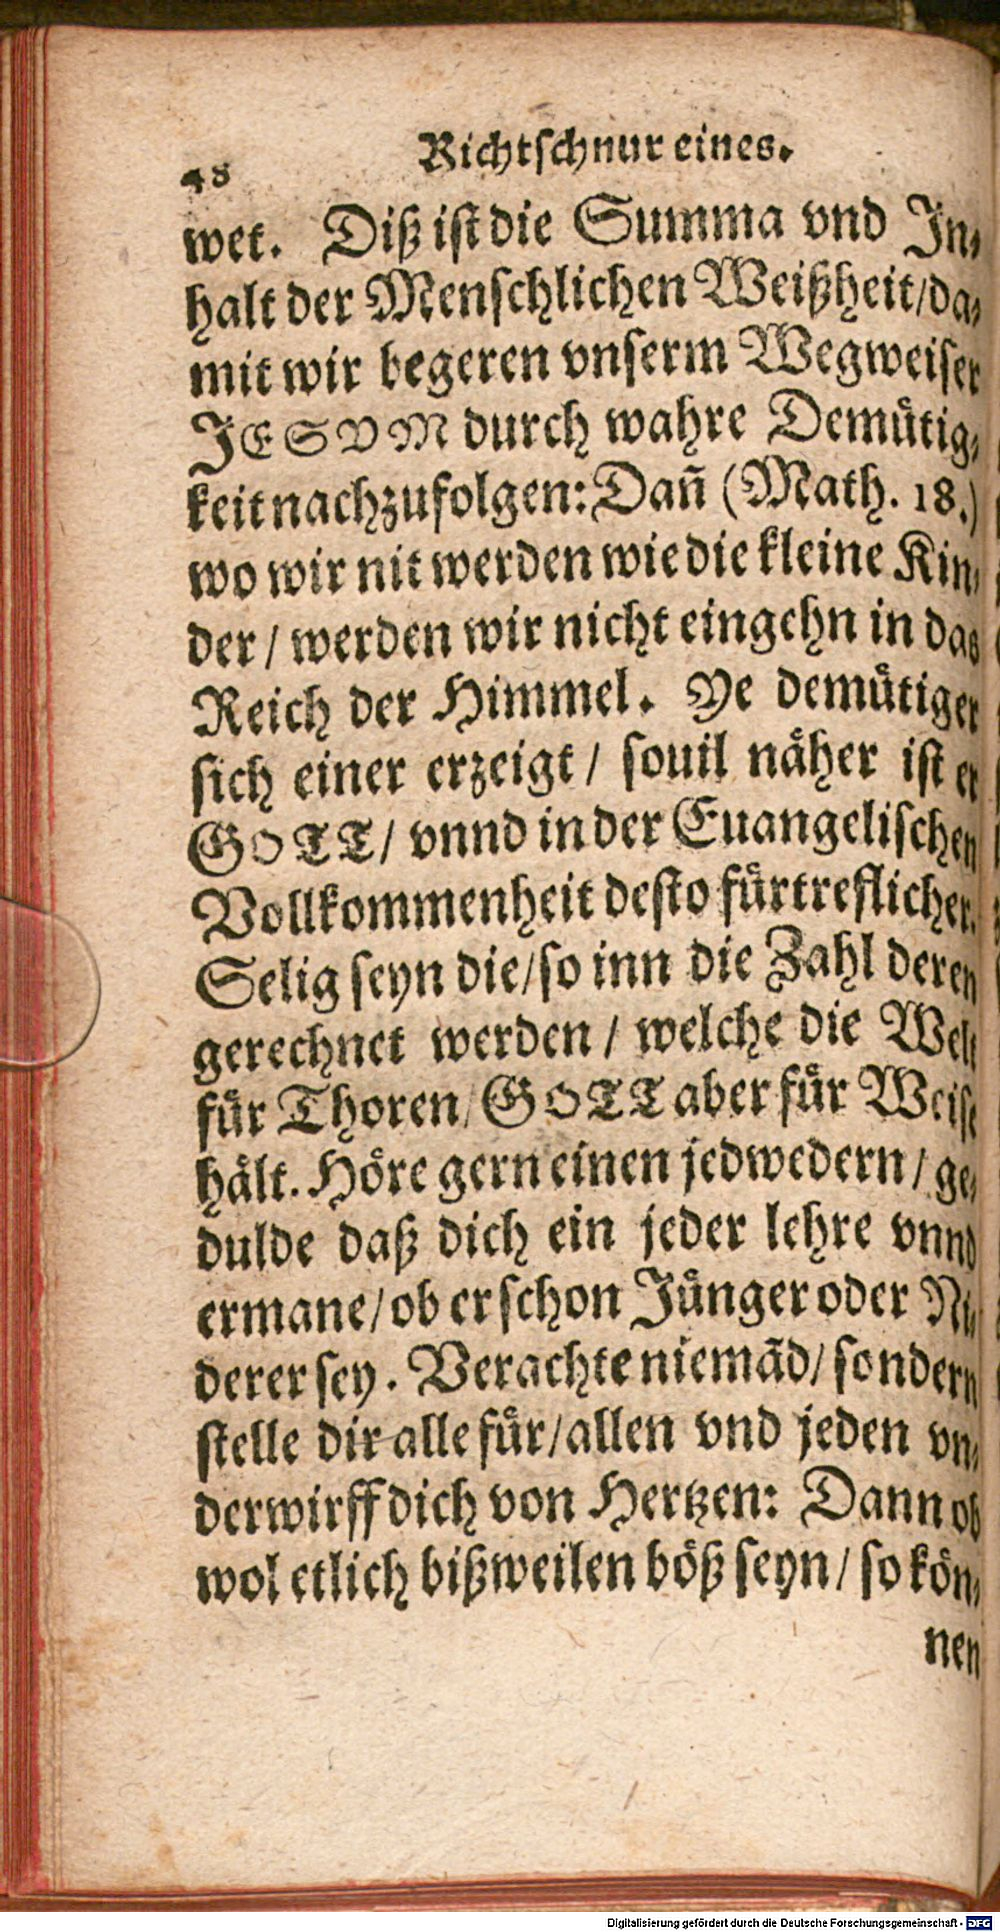 48
Richtschnur eines.
wet. Diß ist die Summa vnd In-
halt der Menschlichen Weißheit/da-
mit wir begeren vnserm Wegweiser
JESVM durch wahre Demütig-
keit nachzufolgen: Dañ (Math. 18.)
wo wir nit werden wie die kleine Kin-
der / werden wir nicht eingehn in das
Reich der Himmel. Ye demütiger
sich einer erzeigt / souil näher ist er
GOTT/ vnnd in der Euangelischen
Vollkommenheit desto fürtreflicher.
Selig seyn die/so inn die Zahl deren
gerechnet werden / welche die Welt
für Thoren/ GOTT aber für Weise
hält. Höre gern einen jedwedern / ge-
dulde daß dich ein jeder lehre vnnd
ermane/ob er schon Jünger oder Ni-
derer sey. Verachte niemãd/ sondern
stelle dir alle für/allen vnd jeden vn-
derwirff dich von Hertzen: Dann ob
wol etlich bißweilen böß seyn / so kön-
nen
Digitalisierung gefördert durch die Deutsche Forschungsgemeinschaft - DFG